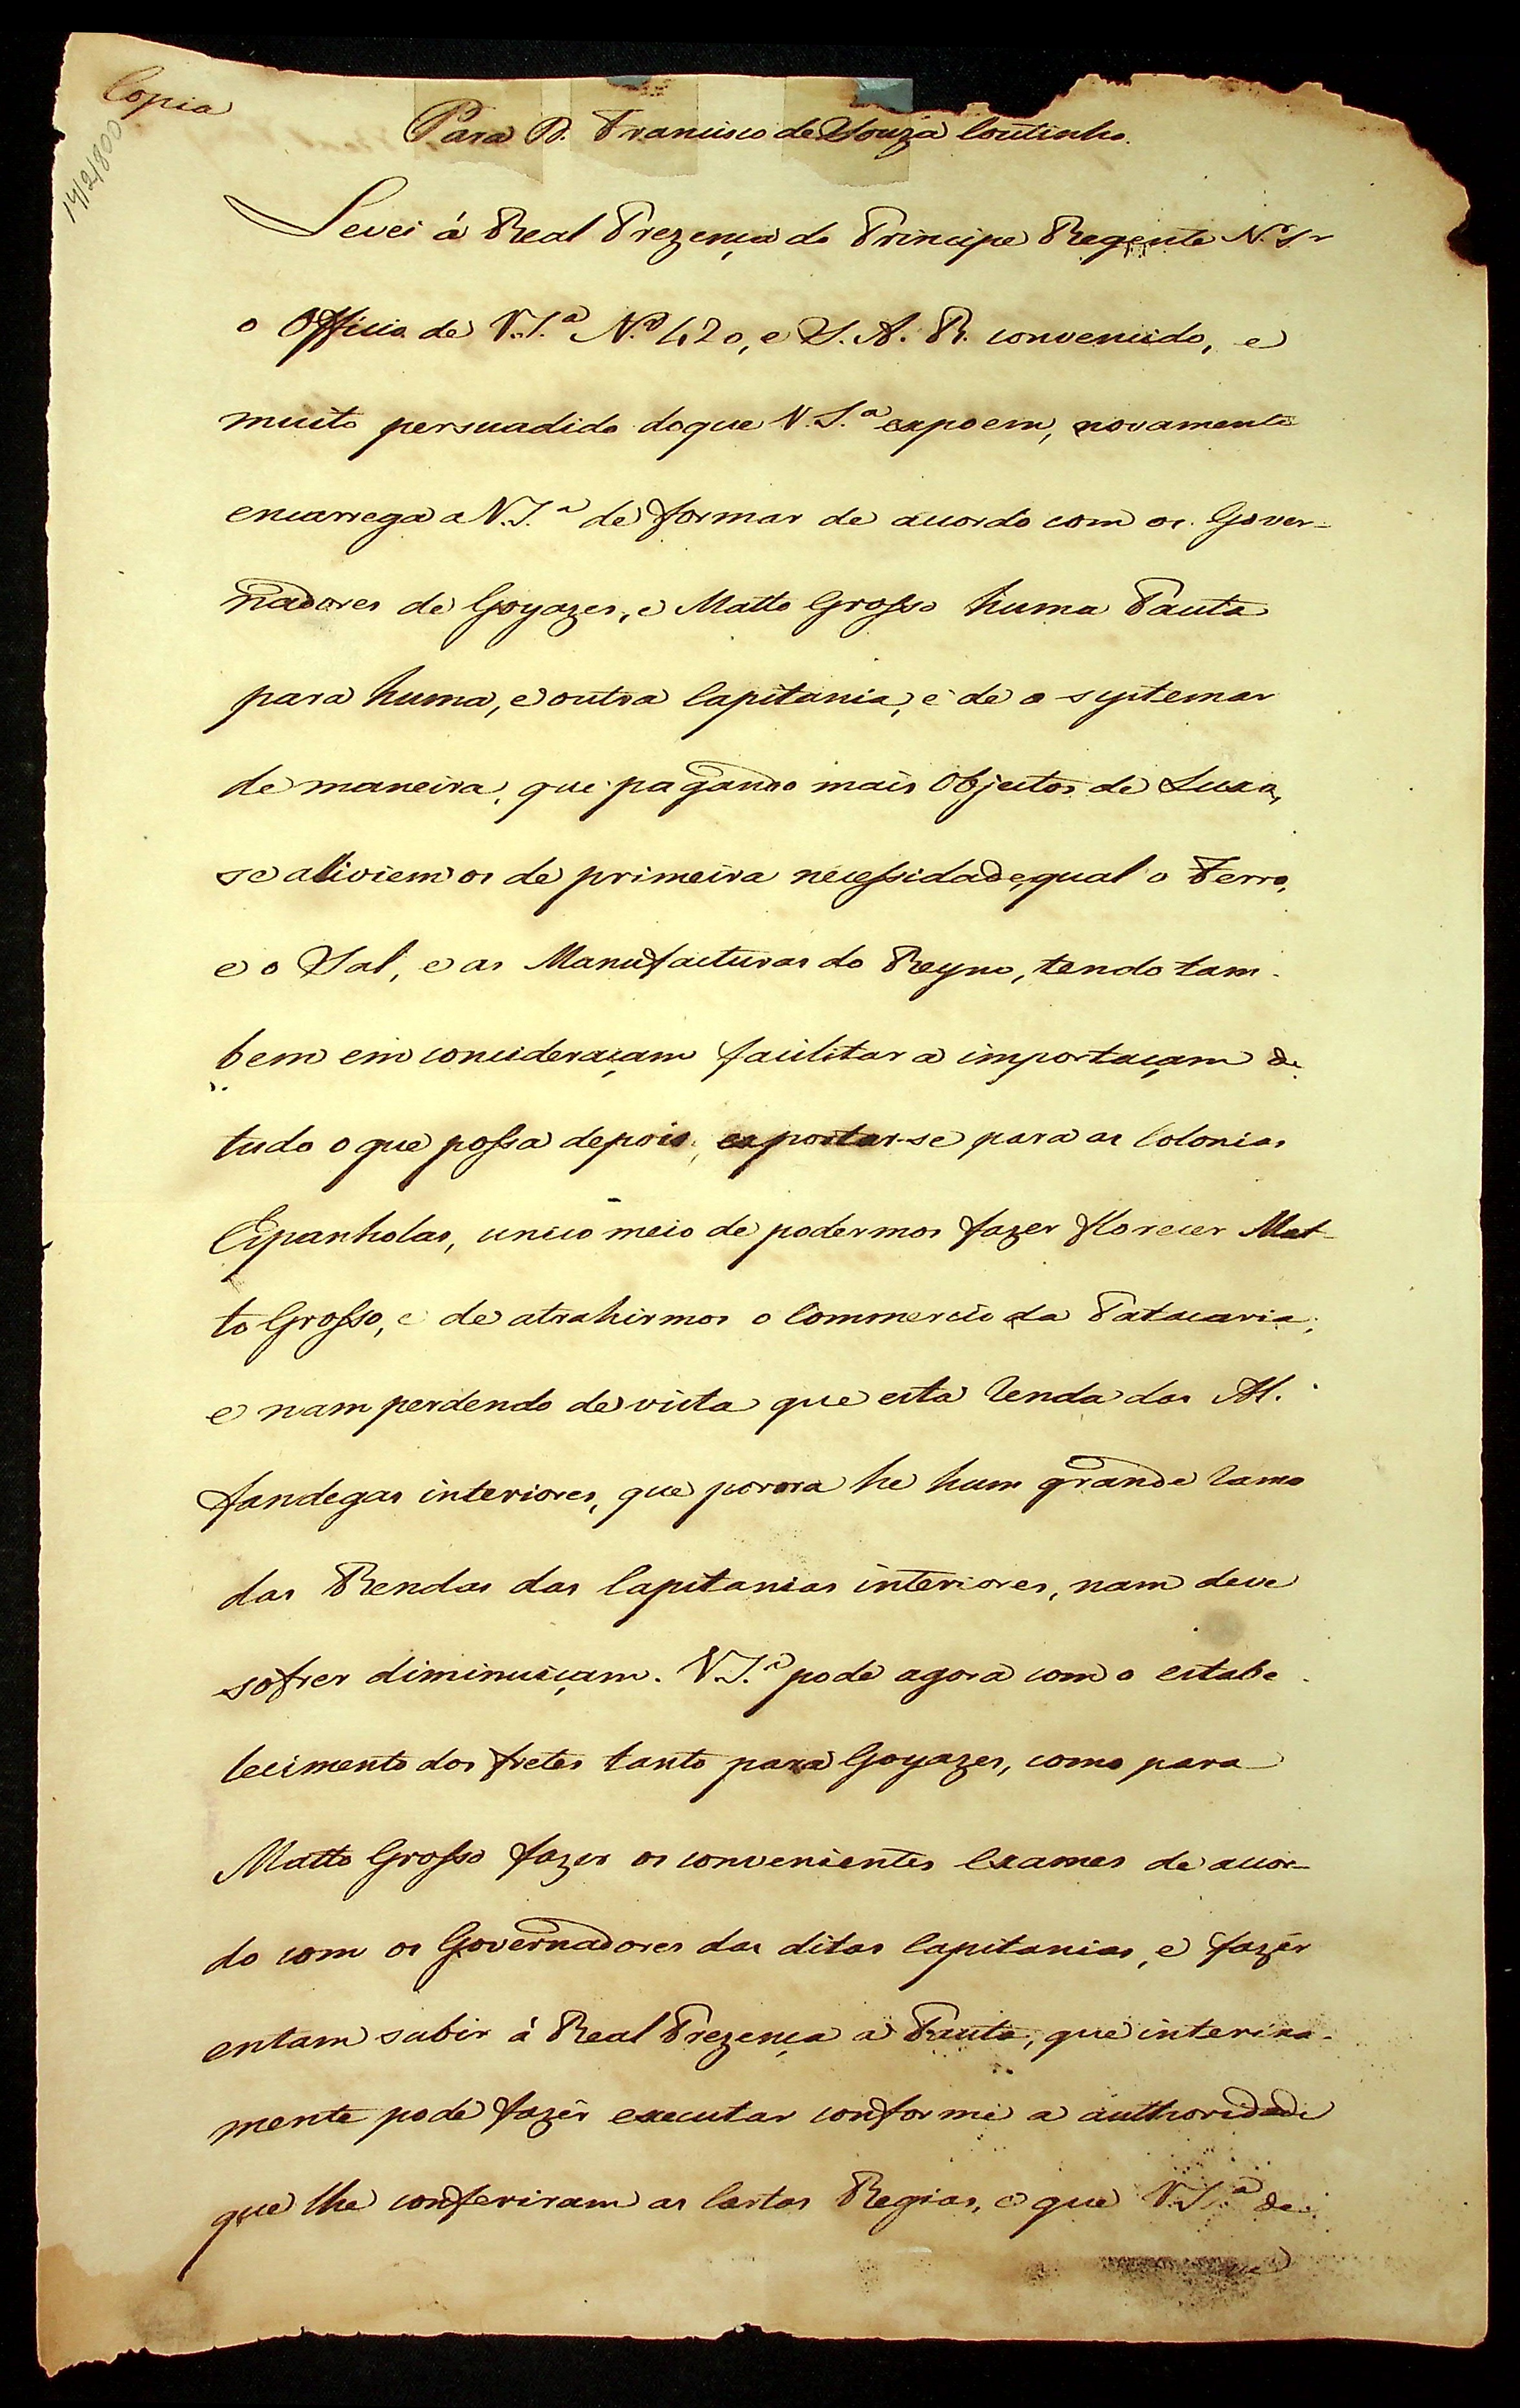 Copia
14/2/800
Para D. Francisco de Souza Coutinho.
Levei á Real Prezença do Principe Regente N. Sr
o Officio de V. S.ª N.º 420, e S. A. R. convencido, e
muito persuadido do que V. S.ª expoem, novamente
encarrega a V. S.ª de formar de acordo com os Gover-
nadores de Goyazes, e Matto Grosso huma Pauta
para huma, e outra Capitania, e de o systemar
de maneira, que pagando mais Objectos de Luxo,
se aliviem os de primeira necessidade, qual o Ferro,
e o Sal, e as Manufacturas do Reyno, tendo tam-
bem em concideraçam facilitar a importaçam de
tudo o que possa depois exportar-se para as Colonias
Espanholas, unico meio de podermos fazer florecer Mat-
to Grosso, e de atrahirmos o Commercio da Patacaria,
e nam perdendo de vista que esta Renda das Al-
fandegas interiores, que porora he hum grande Ramo
das Rendas das Capitanias interiores, nam deve
sofrer diminuiçam. V. S.ª pode agora com o estabe-
lecimento dos fretes tanto para Goyazes, como para
Matto Grosso fazer os convenientes Exames de acor-
do com os Governadores das ditas Capitanias, e fazer
entam subir á Real Prezença a Pauta, que interina-
mente pode fazer executar conforme a authoridade
que lhe conferiram as Cartas Regias, e que V. S.ª de-
ve